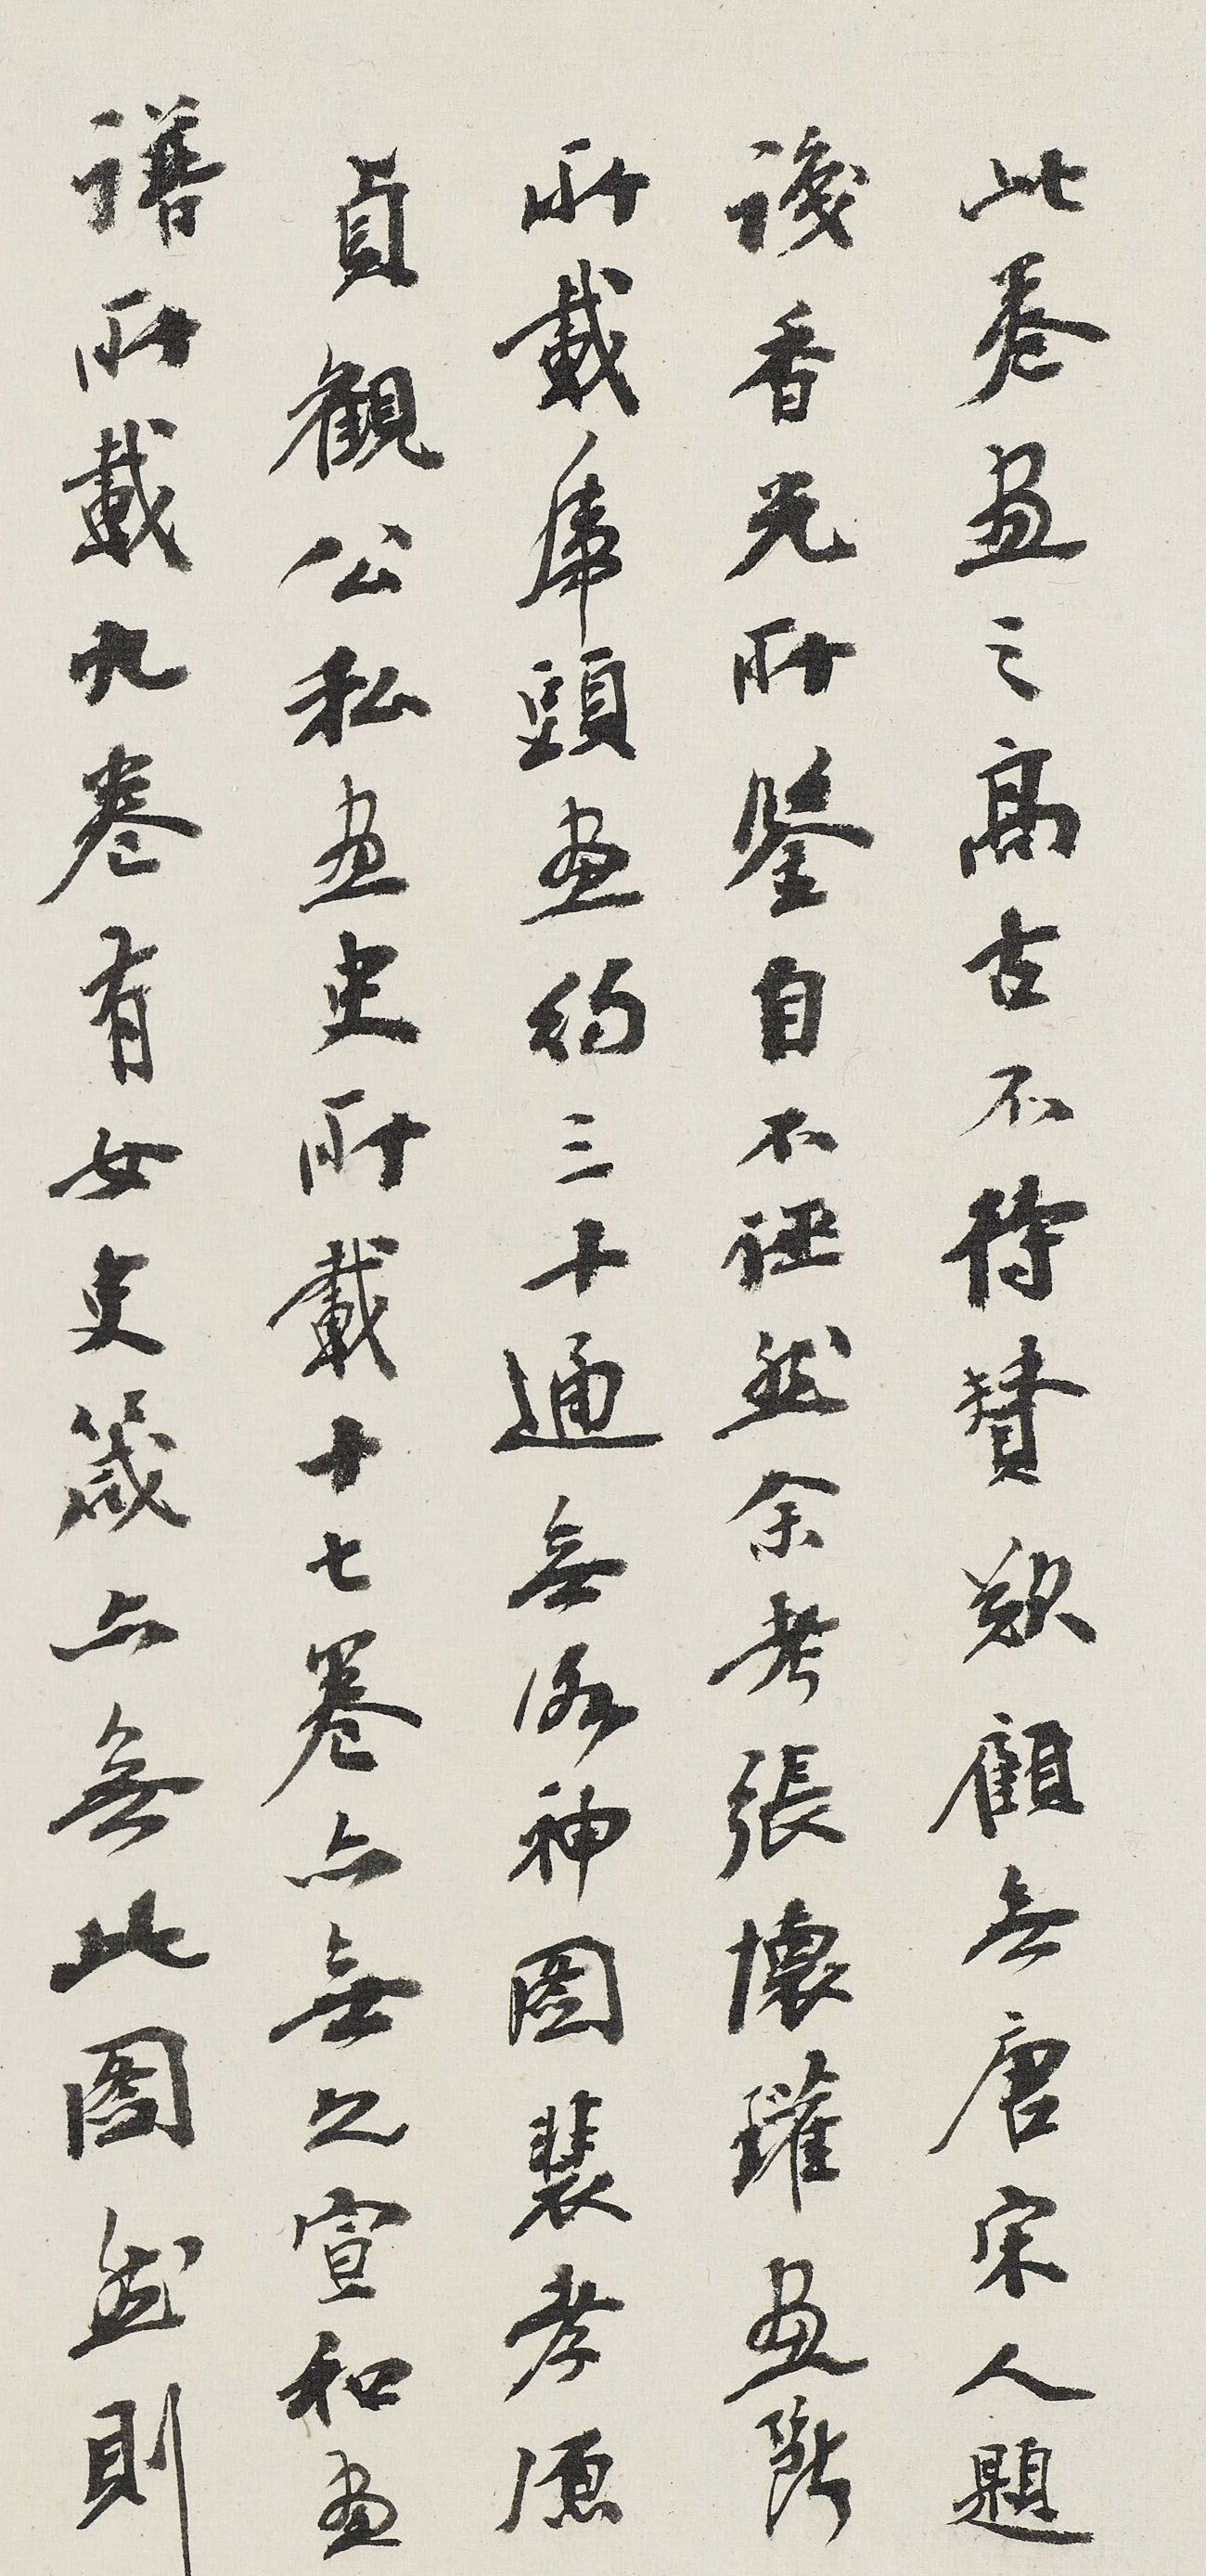 此卷畫之高古不待贊歎顧無唐宋人題
識香光所鑒自不誣然余考張懷瓘畫斷
所載虎頭畫約三十通無洛神圖裴孝源
貞觀公私畫史所載十七卷亦無之宣和畫
譜所載九卷有女史箴亦無此圖然則